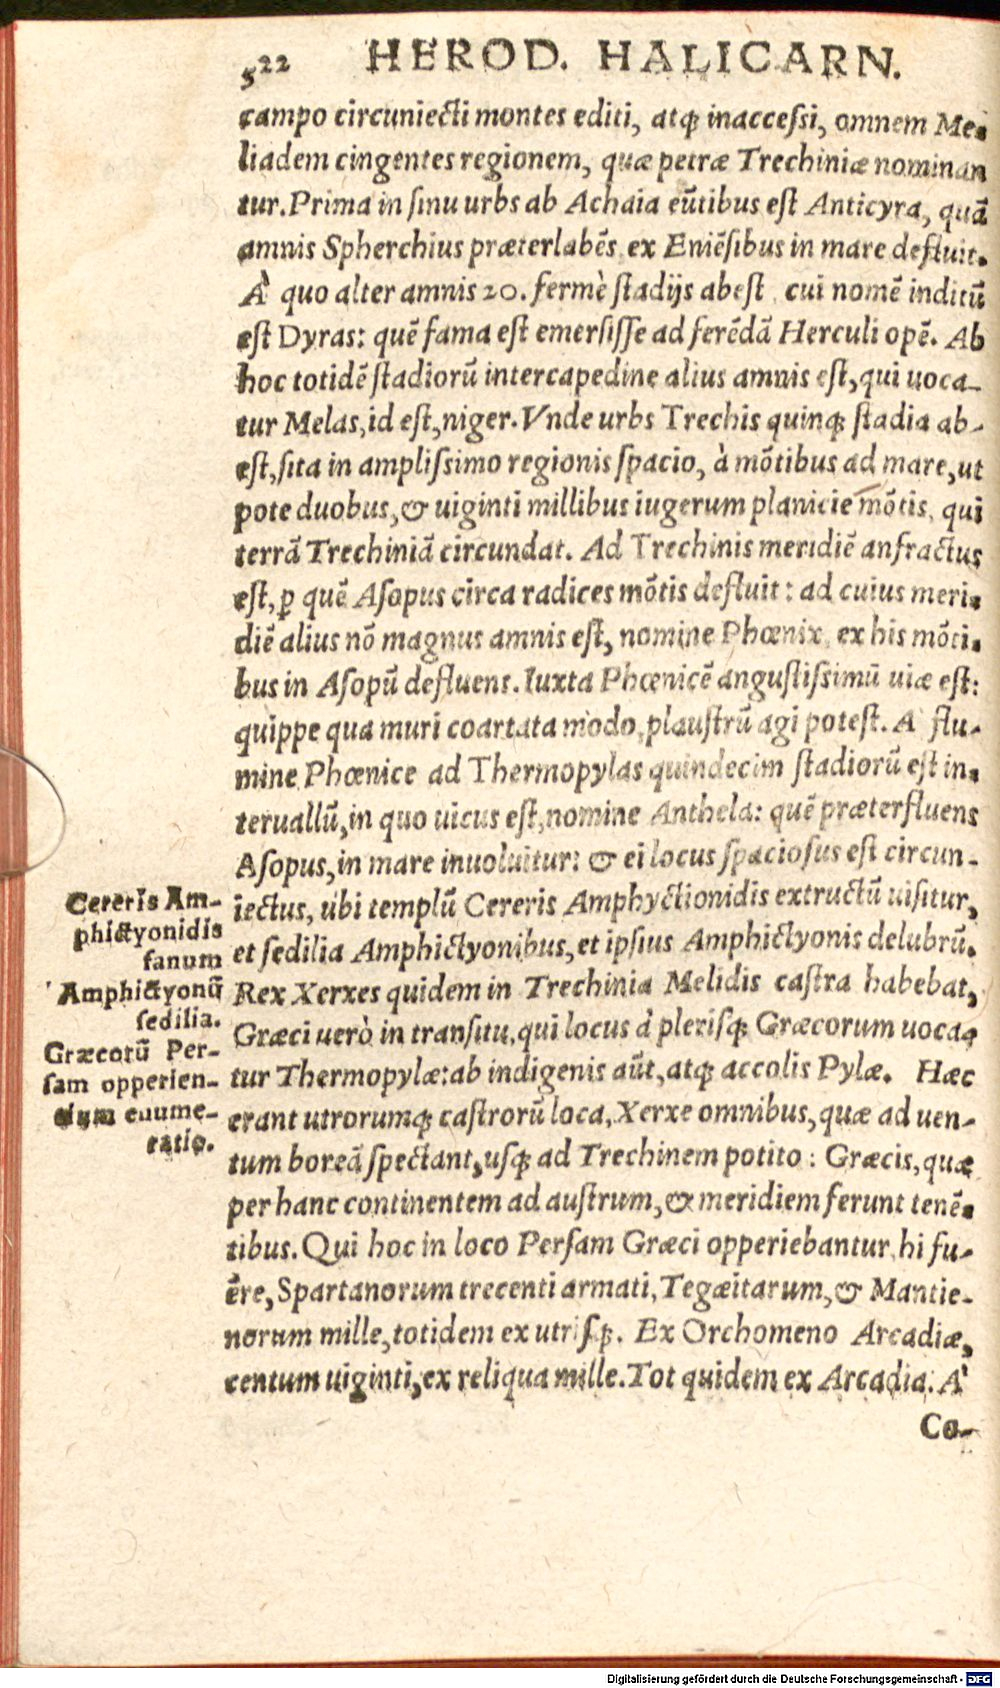 522 HEROD. HALICARN.
campo circuniecti montes editi, atq; inaccessi, omnem Me-
liadem cingentes regionem, quæ petræ Trechiniæ nominan
tur. Prima in sinu urbs ab Achaia eũtibus est Anticyra, quã
amnis Spherchius præterlabẽs ex Eniẽsibus in mare defluit.
À quo alter amnis 20. fermè stadijs abest, cui nomẽ inditũ
est Dyras: quẽ fama est emersisse ad ferẽdã Herculi opẽ. Ab
hoc totidẽ stadiorũ intercapedine alius amnis est, qui uoca-
tur Melas, id est, niger. Vnde urbs Trechis quinq; stadia ab-
est, sita in amplissimo regionis spacio, à mõtibus ad mare, ut
pote duobus, & uiginti millibus iugerum planicie mõtis, qui
terrã Trechiniã circundat. Ad Trechinis meridiẽ anfractus
est, ꝑ quẽ Asopus circa radices mõtis defluit: ad cuius meri-
diẽ alius nõ magnus amnis est, nomine Phœnix, ex his mõti-
bus in Asopũ defluens. Iuxta Phœnicẽ angustissimũ uiæ est:
quippe qua muri coartata modo, plaustrũ agi potest. A flu-
mine Phœnice ad Thermopylas quindecim stadiorũ est in-
teruallũ, in quo uicus est, nomine Anthela: quẽ præterfluens
Asopus, in mare inuoluitur: & ei locus spaciosus est circun-
iectus, ubi templũ Cereris Amphyctionidis extructũ uisitur,
et sedilia Amphictyonibus, et ipsius Amphictyonis delubrũ.
Rex Xerxes quidem in Trechinia Melidis castra habebat,
Græci uerò in transitu, qui locus à plerisq; Græcorum uoca-
tur Thermopylæ: ab indigenis aũt, atq; accolis Pylæ. Hæc
erant utrorumq; castrorũ loca, Xerxe omnibus, quæ ad uen-
tum boreã spectant, usq; ad Trechinem potito: Græcis, quæ
per hanc continentem ad austrum, & meridiem ferunt tenẽ-
tibus. Qui hoc in loco Persam Græci opperiebantur, hi fu-
ẽre, Spartanorum trecenti armati, Tegæitarum, & Mantie-
norum mille, totidem ex utrisq;. Ex Orchomeno Arcadiæ,
centum uiginti, ex reliqua mille. Tot quidem ex Arcadia. A'
Co-
Cereris Am-
phictyonidis
fanum
Amphictyonũ
sedilia.
Græcorũ Per-
sam opperien-
tium enume-
ratio.
Digitalisierung gefördert durch die Deutsche Forschungsgemeinschaft - DFG